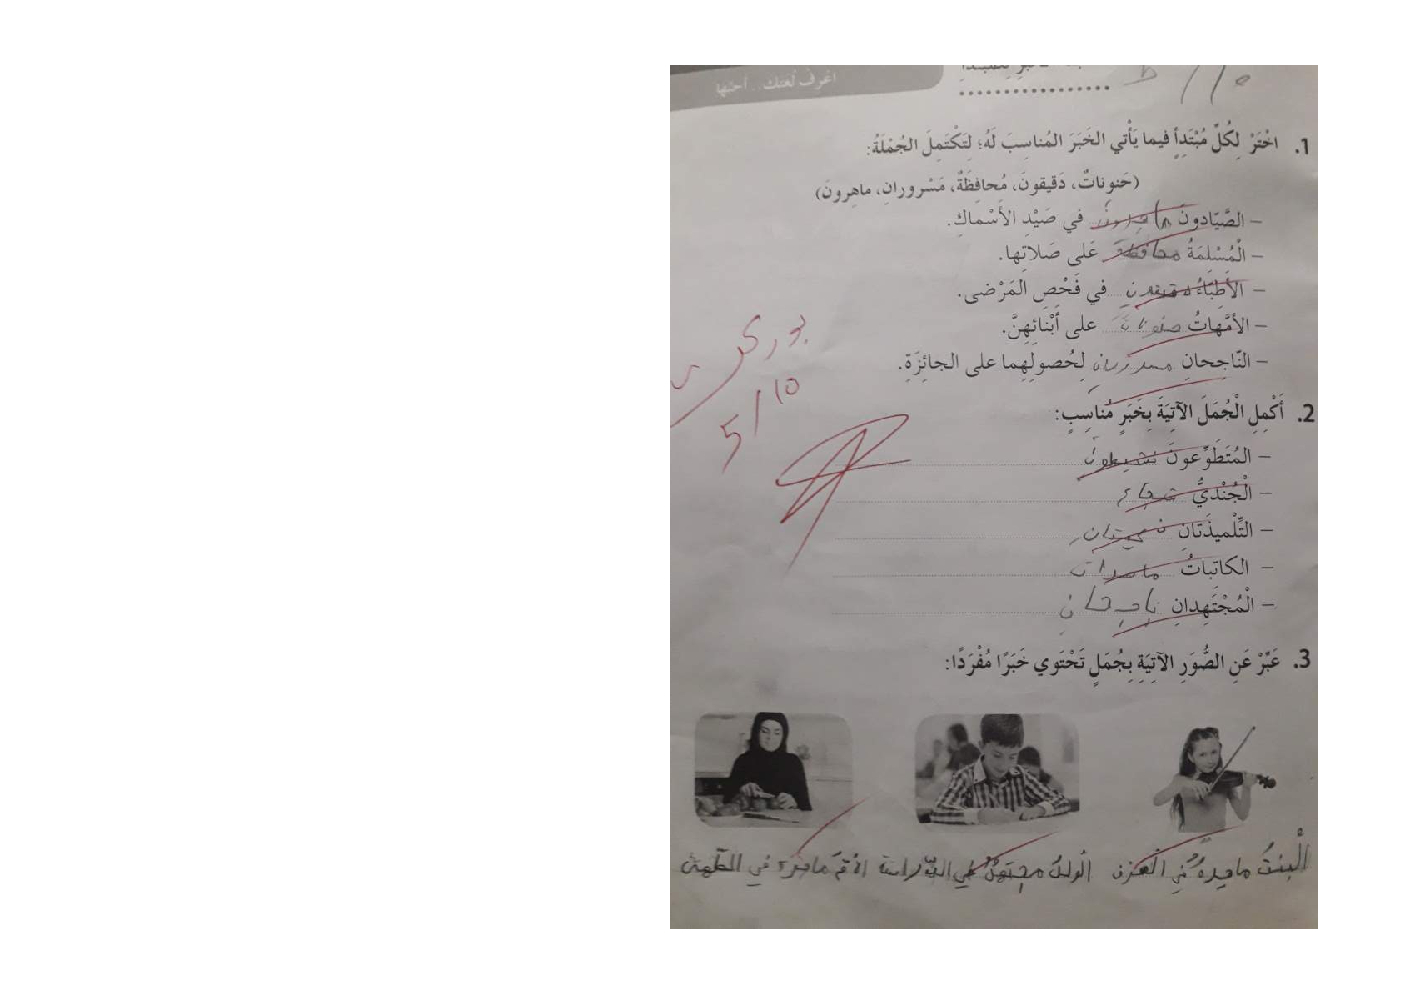 اعرف لغتك.. أحبها
1. اخْتَرْ لِكُلِّ مُبْتَدَأٍ فيما يَأْتي الخَبَرَ المُناسِبَ لَهُ؛ لِتَكْتَمِلَ الجُمْلَةُ:
(حَنوناتٌ، دَقيقونَ، مُحافِظَةٌ، مَسْرورانِ، ماهِرونَ)
– الصَّيّادونَ ماهرونَ في صَيْدِ الأَسْماكِ.
– الْمُسْلِمَةُ محافظة عَلى صَلاتِها.
– الأَطِبّاءُ دقيقون في فَحْصِ المَرْضى.
– الأمَّهاتُ حنونات على أَبْنائِهِنَّ.
– النّاجِحانِ مسروران لِحُصولِهِما على الجائِزَةِ.
بوركت
5/10
2. أَكْمِلِ الْجُمَلَ الآتِيَةَ بِخَبَرٍ مُناسِبٍ:
– المُتَطَوِّعونَ نشيطون
– الْجُنْديُّ شجاع
– التِّلْميذَتانِ
– الكاتباتُ ماهرات
– الْمُجْتَهِدانِ ناجحان
3. عَبِّرْ عَنِ الصُّوَرِ الآتِيَةِ بِجُمَلٍ تَحْتَوي خَبَرًا مُفْرَدًا:
الْبنتُ ماهرةٌ في الْعزف الْولدُ مجتهدٌ في الدّراسة الأمّ ماهرة في الطّهي